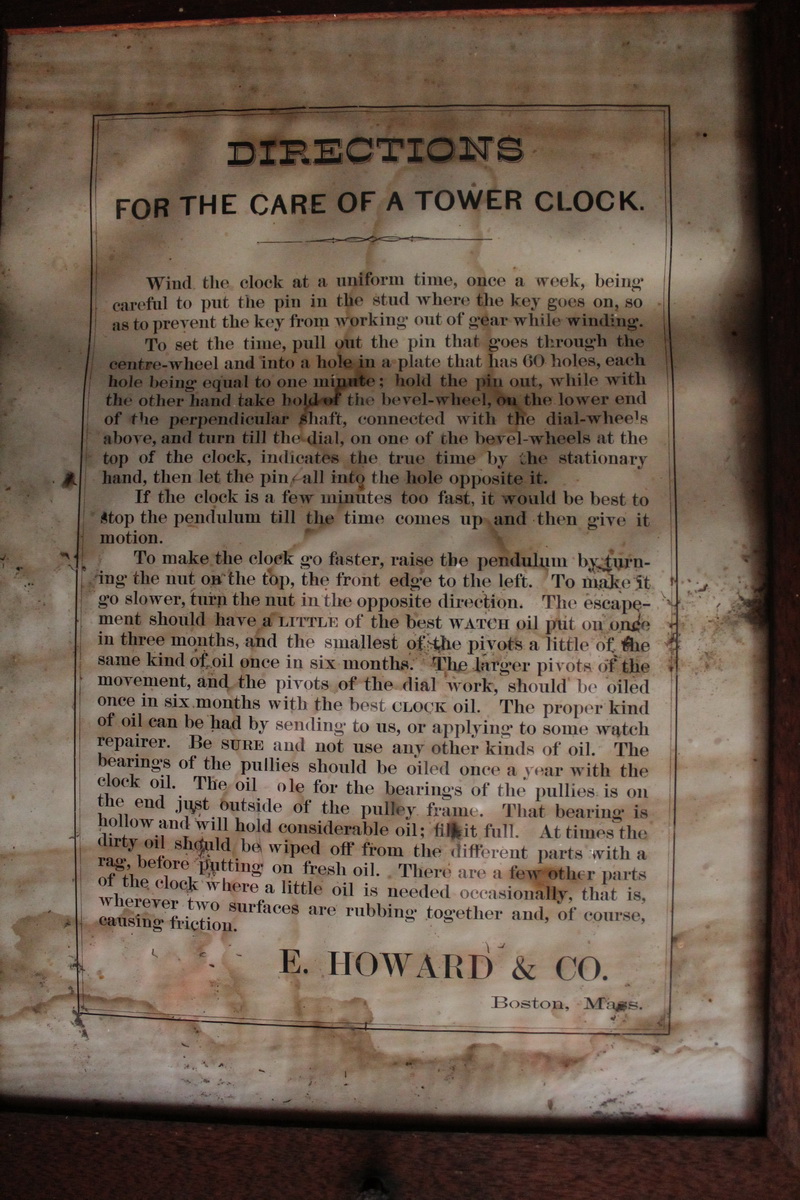 DIRECTIONS
FOR THE CARE OF A TOWER CLOCK.
Wind the clock at a uniform time, once a week, being
careful to put the pin in the stud where the key goes on, so
as to prevent the key from working out of gear while winding.
To set the time, pull out the pin that goes through the
centre-wheel and into a hole in a plate that has 60 holes, each
hole being equal to one minute; hold the pin out, while with
the other hand take hold of the bevel-wheel, on the lower end
of the perpendicular shaft, connected with the dial-wheels
above, and turn till the dial, on one of the bevel-wheels at the
top of the clock, indicates the true time by the stationary
hand, then let the pin fall into the hole opposite it.
If the clock is a few minutes too fast, it would be best to
stop the pendulum till the time comes up and then give it
motion.
To make the clock go faster, raise the pendulum by turn-
ing the nut on the top, the front edge to the left. To make it
go slower, turn the nut in the opposite direction. The escape-
ment should have a LITTLE of the best WATCH oil put on once
in three months, and the smallest of the pivots a little of the
same kind of oil once in six months. The larger pivots of the
movement, and the pivots of the dial work, should be oiled
once in six months with the best CLOCK oil. The proper kind
of oil can be had by sending to us, or applying to some watch
repairer. Be SURE and not use any other kinds of oil. The
bearings of the pullies should be oiled once a year with the
clock oil. The oil hole for the bearings of the pullies is on
the end just outside of the pulley frame. That bearing is
hollow and will hold considerable oil; fill it full. At times the
dirty oil should be wiped off from the different parts with a
rag, before putting on fresh oil. There are a few other parts
of the clock where a little oil is needed occasionally, that is,
wherever two surfaces are rubbing together and, of course,
causing friction.
E. HOWARD & CO.
Boston, Mass.